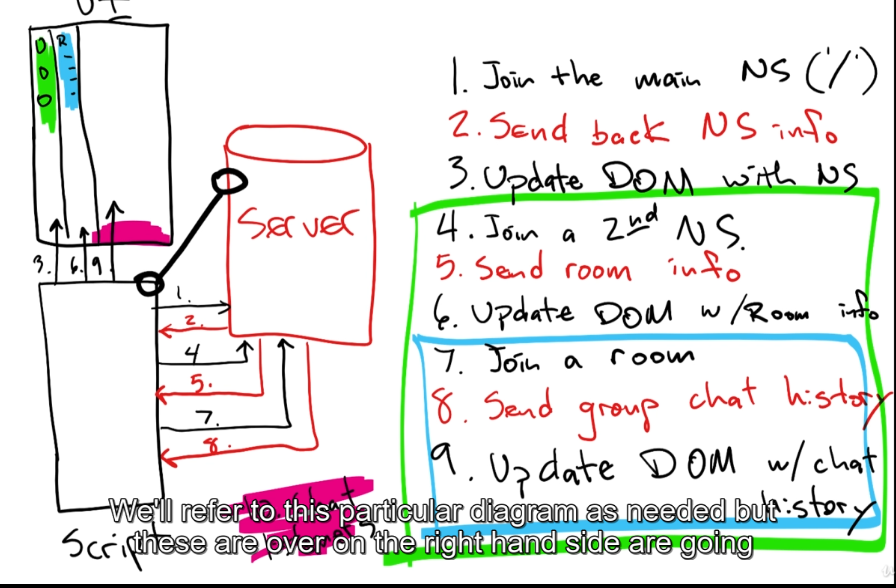 R
Server
3.
6.
9.
1.
2.
4
5.
7.
8.
Script
1. Join the main NS ('/')
2. Send back NS info
3. Update DOM with NS
4. Join a 2nd NS.
5. Send room info
6. Update DOM w/Room info
7. Join a room
8. Send group chat history
9. Update DOM w/chat
history
We'll refer to this particular diagram as needed but
these are over on the right hand side are going